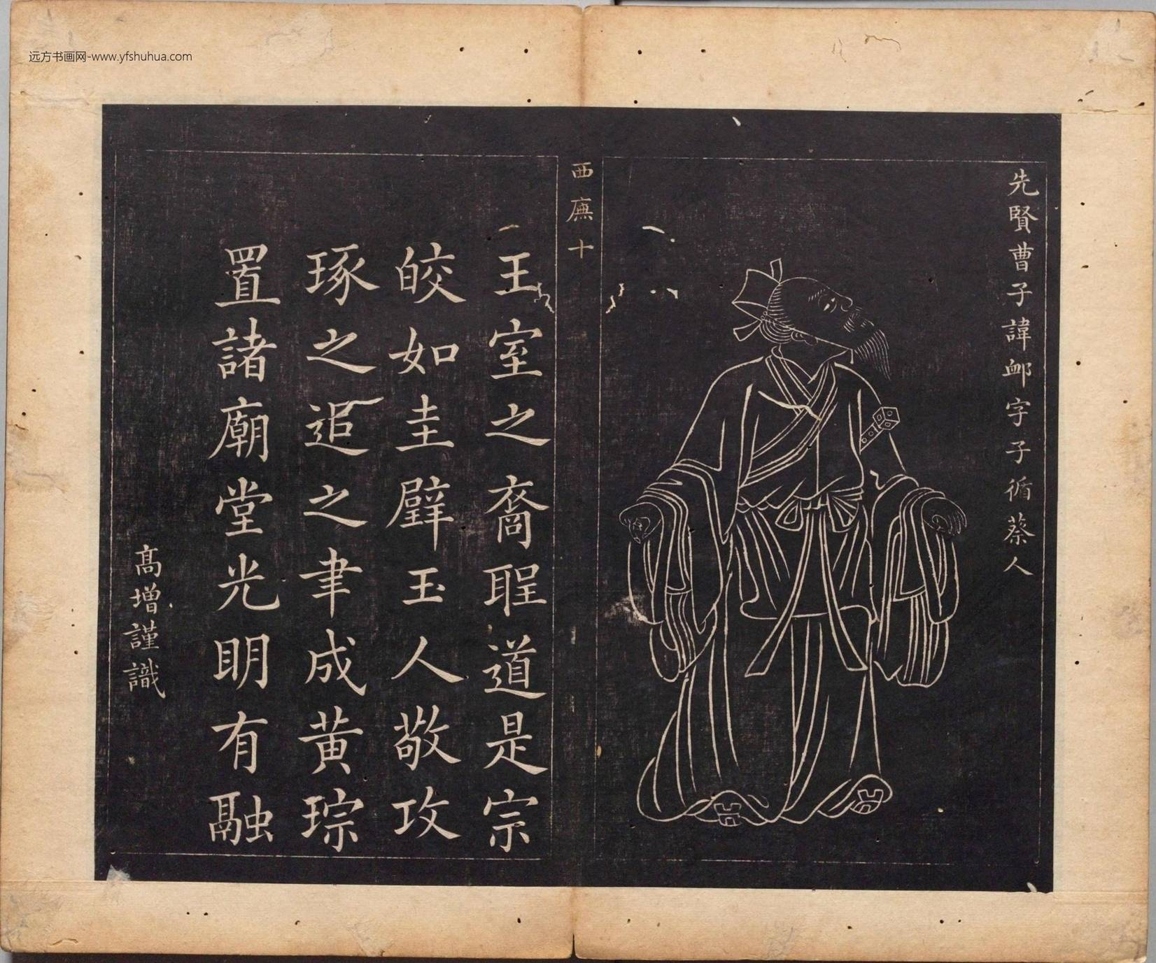 远方书画网-www.yfshuhua.com
先賢曹子諱卹字子循蔡人
西廡十
王室之裔聖道是宗
皎如圭璧玉人敬攻
琢之追之聿成黃琮
置諸廟堂光明有融
高增謹識